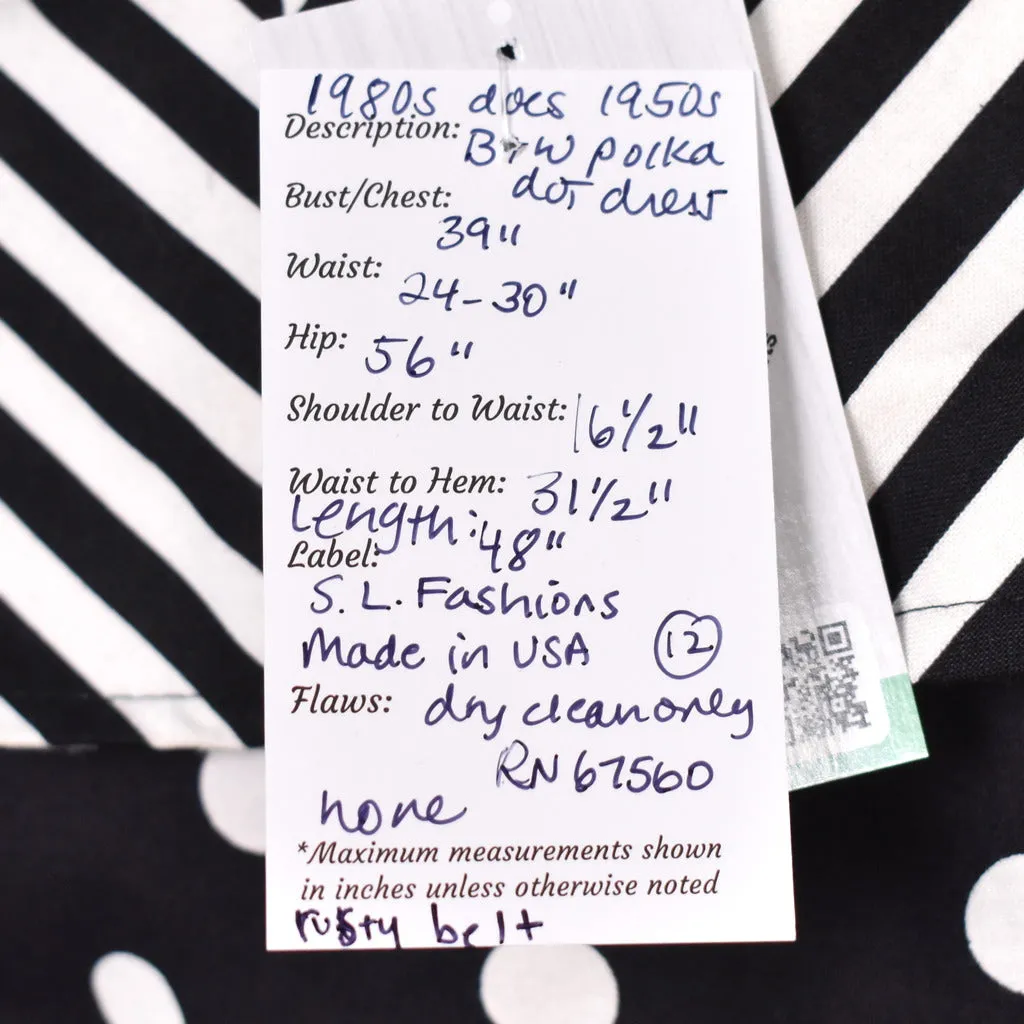 1980s does 1950s
Description: B+W polka
dot dress
Bust/Chest:
39"
Waist: 24-30"
Hip: 56"
Shoulder to Waist: 16 1/2"
Waist to Hem: 31 1/2"
Length: 48"
Label:
S. L. Fashions
Made in USA 12
Flaws: dry clean only
RN 67560
none
*Maximum measurements shown
in inches unless otherwise noted
rusty belt